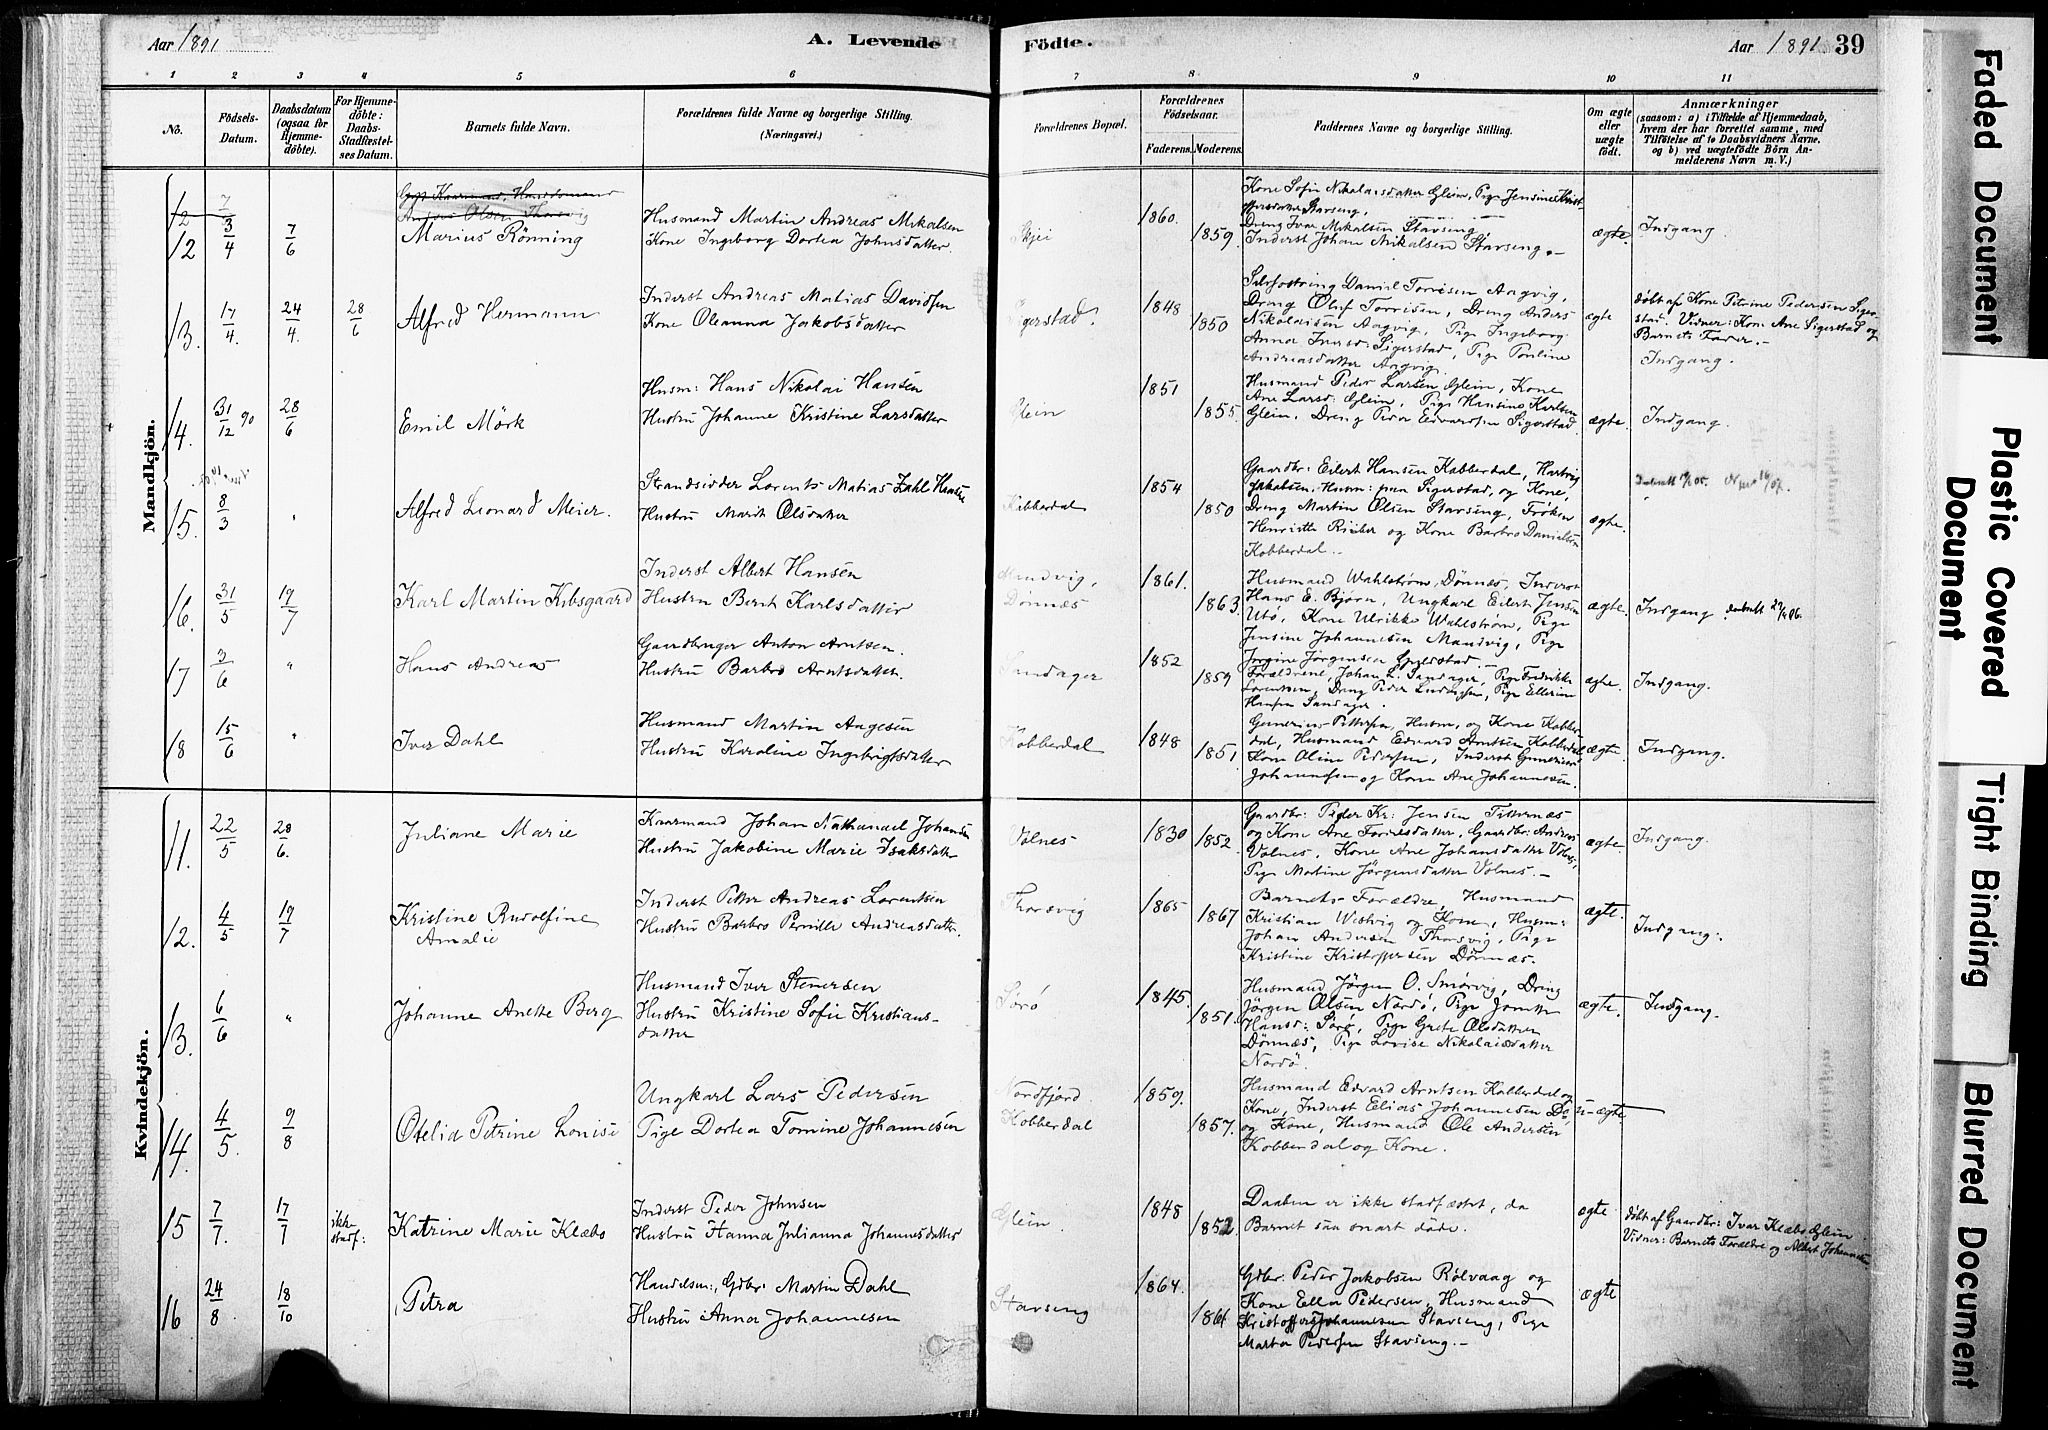 Aar 1891
A. Levende
Födte.
Aar 1891
39
1 2 3 4 5 6 7 8 9 10 11
No.
Födsels-Datum.
Daabsdatum (ogsaa for Hjemmedöbte).
For Hjemmedöbte: Daabs-Stadfæstelses Datum.
Barnets fulde Navn.
Forældrenes fulde Navne og borgerlige Stilling.
(Næringsvei.)
Forældrenes Bopæl.
Forældrenes Födselsaar.
Faderens. Moderens.
Faddernes Navne og borgerlige Stilling.
Om ægte eller uægte födt.
Anmærkninger
(saasom: a) i Tilfælde af Hjemmedaab, hvem der har forrettet samme, med Tilföielse af to Daabsvidners Navne. og b) ved uægtefödte Börn Anmelderens Navn m. V.)
Mandkjön.
12 3/4 7/6 Marius Rönning
Husmand Martin Andreas Mikalsen
Kone Ingeborg Dortea Johnsdatter
Skjei 1860. 1859.
Kone Sofie Nikolaisdatter Glein, Pige Jensine Kristoffersdatter Stavseng,
Dreng Ivar Mikalsen Stavseng,
Inderst Johan Mikalsen Stavseng.-
ægte. Indgang
13. 17/4. 24/4. 28/6 Alfred Hermann
Inderst Andreas Matias Davidsen
Kone Oleanna Jakobsdatter
Sigerstad. 1848 1850
Daniel Torrisen Angvig,
Dreng Oluf Torrisen, Dreng Anders
Nikolaisen Angvig, Pige Ingeborg
Anna Iversd: Sigerstad, Pige Pauline
Andreasdatter Angvig.
ægte
döbt af Kone Petrine Pedersen Sigerstad. Vidner: Kone Ane Sigerstad og
Barnets Fader.-
Indgang.
14. 31/12 90 28/6 Emil Mörk
Husm: Hans Nikolai Hansen
Hustru Johanne Kristine Larsdatter
Glein 1851 1855
Husmand Peder Larsen Glein, Kone
Ane Larsd: Glein, Pige Hansine Karlsen
Glein, Dreng Peder Edvardsen Sigerstad.
ægte. Indgang.
15. 8/3 " Alfred Leonard Meier.
Strandsidder Lorents Matias Zahl Hansen
Hustru Marit Olsdatter
Kobberdal 1854 1850
Gaardbr: Eilert Hansen Kobberdal, Hartvig
Jakobsen, Husm: paa Sigerstad, og Kone,
Dreng Martin Olsen Stavseng, Fröken
Henriette Rieber og Kone Barbro Danielsen
Kobberdal.-
ægte.
16. 31/5 19/7 Karl Martin Kobsgaard
Inderst Albert Hansen
Hustru Berit Karlsdatter
Mandvig, Dönnæs 1861. 1863.
Husmand Wahlström, Dönnæs, Inderst
Hans E. Björn, Ungkarl Eilert Jensen
Utö, Kone Ulrikke Wahlström, Pige
Jensine Johannesen Mandvig, Pige
Jorgine Jörgensen
ægte. Indgang
17 2/6 " Hans Andreas
Gaardbruger Anton Arntsen.
Hustru Barbro Arntsdatter.
Sandager 1852 1859
Forældrene, Johan L. Sandager, Pige Fredrikke
Lorentsen, Dreng Peder Ludvigsen, Pige Ellerine
Hansen Sandager.
ægte. Indgang.
18 15/6 " Iver Dahl
Husmand Martin Aagesen
Hustru Karoline Ingebrigtsdatter
Kobberdal 1848 1851
Gunerius Pettersen, Husm, og Kone Kobberdal, Husmand Edvard Arntsen Kobberdal
Kone Oline Pedersen, Inderst Gunerius
Johannesen og Kone Ane Johannesen.
ægte. Indgang.
Kvindekjön.
11. 22/5 28/6. Juliane Marie
Kaarmand Johan Nathanael Johansen
Hustru Jakobine Marie Isaksdatter
Volnes 1830 1852.
Gaardbr: Peder Kr: Jensen Titternæs
og Kone Ane Torrisdatter, Gaardbr: Andreas
Volnes, Kone Ane Johansdatter Volnes,
Pige Martine Jörgensdatter Volnes.-
ægte. Indgang.
12. 4/5 19/7 Kristine Rudolfine
Amalie
Inderst Petter Andreas Lorentsen
Hustru Barbro Pernille Andreasdatter.
Thorsvig 1865 1867
Barnets Forældre, Husmand
Kristian Westvig og Kone, Husm:
Johan Andersen Thorsvig, Pige
Kristine Kristoffersen Dönnæs.
ægte. Indgang.
13. 6/6 " Johanne Anette Berg
Husmand Iver Stenersen
Hustru Kristine Sofie Kristiansdatter
Sörö 1845. 1851.
Husmand Jörgen O. Smörvig, Dreng
Jörgen Olsen Nordö, Pige
Hansd: Sörö, Pige Grete Olsdatter
Dönnæs, Pige Lovise Nikolaisdatter
Nordö.
ægte. Indgang.
14. 4/5. 9/8 Otelia Petrine Lovise
Ungkarl Lars Pedersen
Pige Dortea Tomine Johannesen
Nordfjord
Kobberdal 1859. 1857.
Husmand Edvard Arntsen Kobberdal og
Kone, Inderst Elias Johannesen Do,
og Kone, Husmand Ole Andersen
Kobberdal og Kone.
u-ægte
15 7/7. 17/7 ikke stadf: Katrine Marie Klæbo
Inderst Peder Johnsen
Hustru Hanna Julianna Johannesdatter
Glein. 1848 1852
Daaben er ikke stadfæstet, da
Barnet saa snart döde.
ægte
döbt af Gaardbr: Ivar Klæbo Glein.
Vidner: Barnets Forældre og Albert Johannesen
16 24/8 18/10 Petra
Handelsm:, Gdbr: Martin Dahl
Hustru Anna Johannesen
Stavseng 1864. 1861
Gdbr: Peder Jakobsen Rölvaag og
Kone Ella Pedersen, Husmand
Kristoffer Johannesen Stavseng, Pige
Marta Pedersen Stavseng.-
ægte
Faded Document
Plastic Covered Document
Tight Binding
Blurred Document